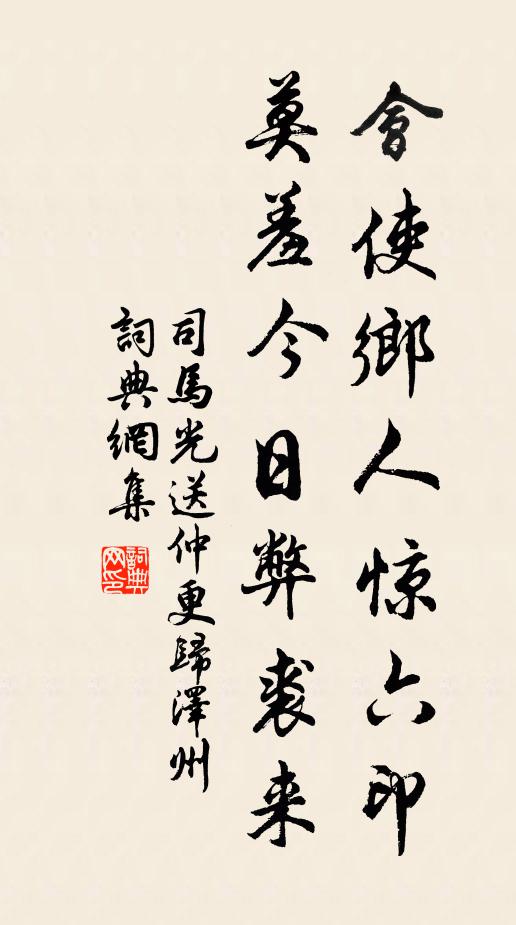 會使鄉人惊六印
莫羞今日弊裘来
司馬光送仲更歸澤州
詞典網集
詞典网印